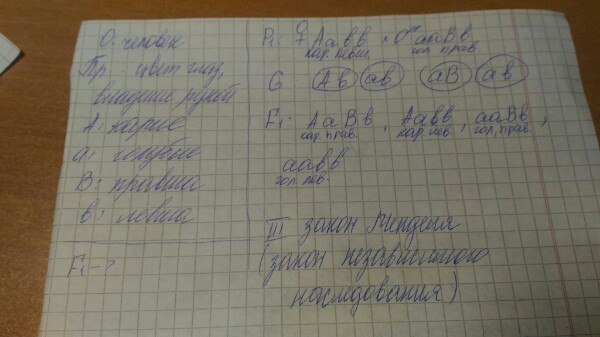 О: человек
Пр: цвет глаз,
владение рукой
А: карие
а: голубые
В: правша
в: левша
F₁ - ?
P₁: ♀ Аавв × ♂ ааВв
кар. левш. гол. прав.
G: Ав ав аВ ав
F₁: АаВв, Аавв, ааВв,
кар. прав. кар. лев. гол. прав.
аавв
гол. лев.
III закон Менделя
(закон независимого
наследования)